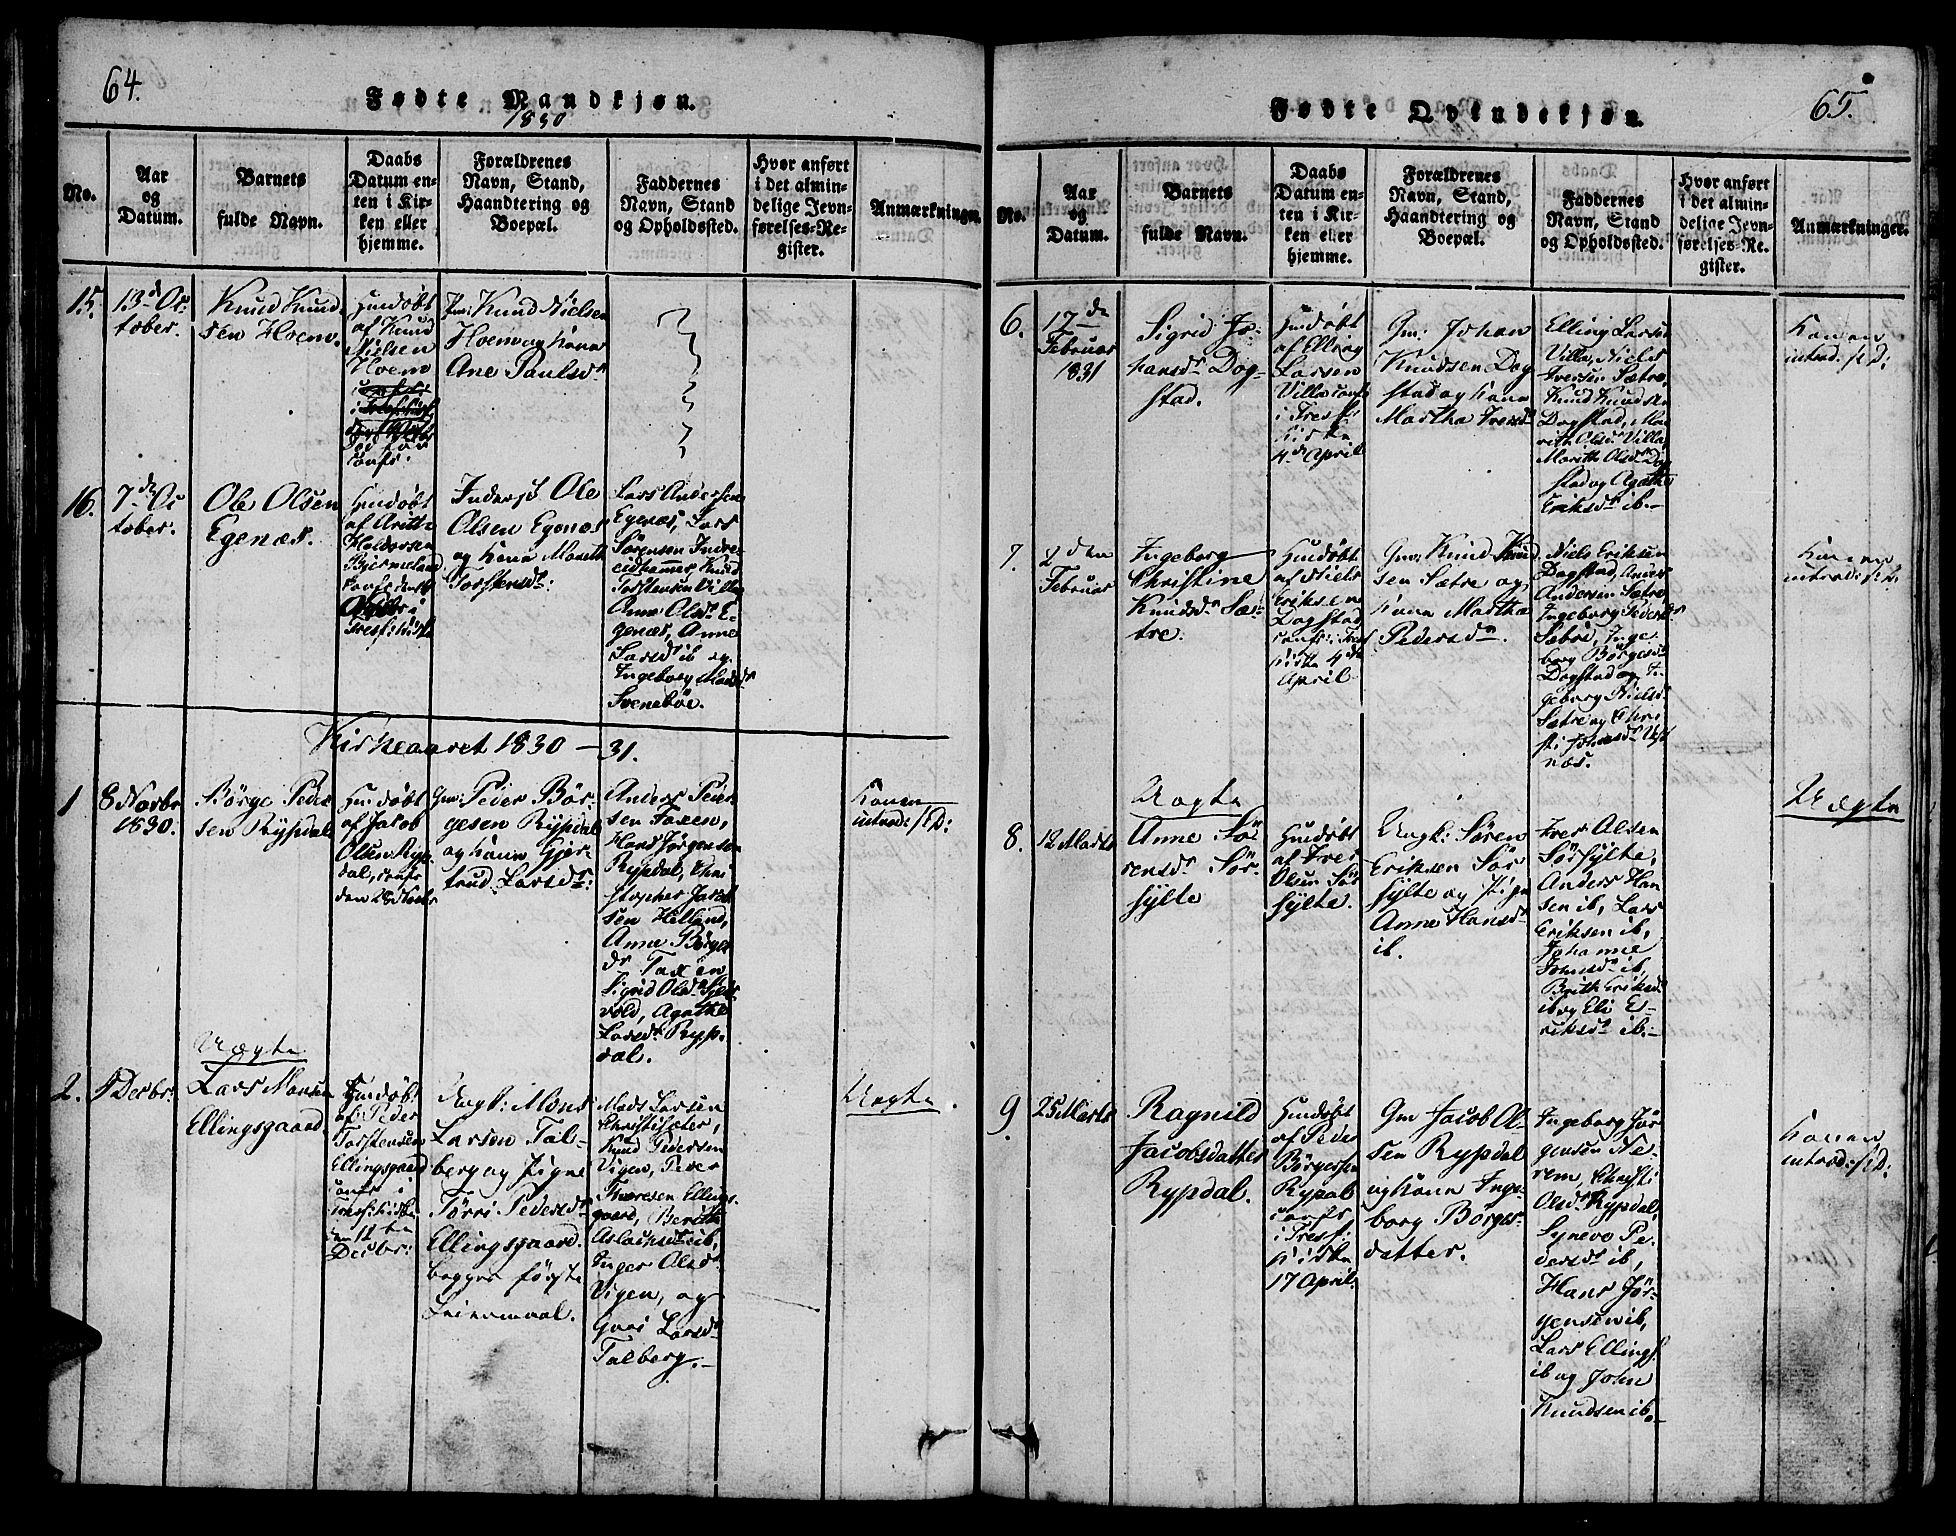 64.
Fødte Mandkjøn.
1830
No.
Aar
og
Datum.
Barnets
fulde Navn.
Daabs
Datum en-
ten i Kir-
ken eller
hjemme.
Forældrenes
Navn, Stand,
Haandtering og
Boepæl.
Faddernes
Navn, Stand
og Opholdssted.
Hvor anført
i det almin-
delige Jevn-
førelses-Re-
gister.
Anmærkninger.
15.
13de Oc
tober.
Knud Knud
sen Hoem.
Hmdøbt
af Knud
Nielsen
Hoem
Gm: Knud Nielsen
Hoem og kone
Ane Paulsdr
16.
7de Oc
tober.
Ole Olsen
Egenæs.
Hmdøbt
af
Bjermeland
Tresf: Kirke
Inderst Ole
Olsen Egenæs
og kone Marith
Torstensdr:
Lars Andersen
Egenæs, Lars
Sørensen Indre-
eidhammer Knud
Torstensen Villa
Anne Olsdr E-
genæs, Anne
Larsdr ib og
Ingeborg Madsdr
Svenebøe.
Kirkeaaret 1830 - 31.
1
8 Novbr
1830.
Børge Peder
sen Rypdal
Hmdøbt
af Jacob
Olsen Ryp-
dal, conf:
Gm: Peder Bør-
gesen Rypdal
og kone Gjer-
trud Larsdr:
Anders Peder
sen Toxen,
Hans Jørgensen
Rypdal, Chri
stopher Jacob
sen Helland,
Anne Børges
dr Toxen
Sigrid Olsdr
vold, Agathe
Larsdr Ryp-
dal.
Konen
introd: s. D:
Uægte
2.
5 Decbr:
Lars Monsen
Ellingsgaard.
Hmdøbt
af Peder
Torstensen
Ellingsgaard
conf: i
Tresf: Kirke
den 12te
Decbr:
Ungk: Mons
Larsen Tal-
berg og Pigne
Tørri Pedersdr
Ellingsgaard.
begges første
Leiermaal.
Mads Larsen
Knud Pedersen
Vigen, Peder
Iversen Ellings-
gaard, Berith
Aslaksdr ib,
Inger Olsdr
Vigen, og
Guri Larsdr
Talberg.
Uægte.
65.
Fødte Qvindekjøn.
No.
Aar
og
Datum.
Barnets
fulde Navn.
Daabs
Datum en-
ten i Kir-
ken eller
hjemme.
Forældrenes
Navn, Stand,
Haandtering og
Boepæl.
Faddernes
Navn, Stand
og Opholdssted.
Hvor anført
i det almin-
delige Jevn-
førelses-Re-
gister.
Anmærkninger.
6.
17de
Februar
1831
Sigrid Jo-
hansdr Dag-
stad.
Hmdøbt
af Elling
Larsen
Villa conf:
i Tresf:
Kirke
4de April
Gm: Johan
Knudsen Dag
stad og kone
Martha Iversdr
Elling Larsen
Villa, Niels
Iversen Sætre,
Knud Knudsen
Dagstad, Ma
rith Olsdr Villa
Marith Olsdr Dag
stad og Agathe
Eriksdr ib.
Konen
introd: s. D:
7.
2den
Februar
Ingeborg
Christine
Knudsdr Sæ-
tre.
Hmdøbt
af Niels
Eriksen
Dagstad
conf: Tresf:
Kirke 4de
April
Gm: Knud Knud
sen Sætre og
kone Martha
Pedersdr.
Niels Eriksen
Dagstad, Anders
Andersen Sætre
Ingeborg Pedersdr
Sætre, Inge
borg Børgesdr
Dagstad og In
geborg Nielsdr
Sætre og Chri
sti Johnsdr Vest
næs.
Konen
introd: s. D:
Uægte
8.
12 Marts
Anne Sø
rensdr Sør-
sylte
Hmdøbt
af Iver
Olsen Sør
sylte.
Ungk: Søren
Eriksen Sør
sylte og Pige
Anne Hansdr
ib.
Iver Olsen
Sørsylte,
Anders Han
sen ib, Lars
Eriksen ib,
Johanne
Johnsdr ib,
Brith Eriksdr
ib og Eli E-
riksdr ib.
Uægte
9.
25 Marts
Ragnild
Jacobsdatter
Rypdal.
Hmdøbt
af Peder
Børgessen
Rypdal
conf:
i Tresf:
Kirke
17 April
Gm Jacob Ol-
sen Rypdal
og kone Inge-
borg Børges-
datter.
Ingeborg Jør
gensen Ne-
rem, Christi
Olsdr Rypdal,
Synevo Pe-
dersdr ib,
Hans Jør-
gensen ib,
Lars Ellings.
ib og John
Knudsen ib.
Konen
introd: s. D: